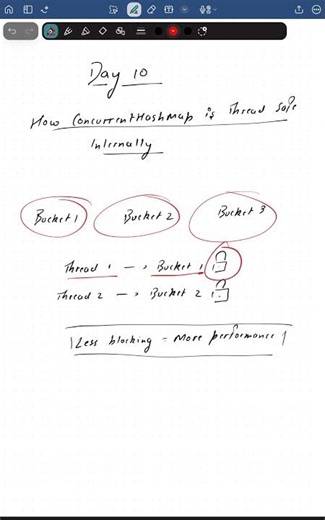 Day 10
How ConcurrentHashMap is Thread Safe
Internally
Bucket 1 Bucket 2 Bucket 3
Thread 1 → Bucket 1
Thread 2 → Bucket 2
Less blocking = More performance